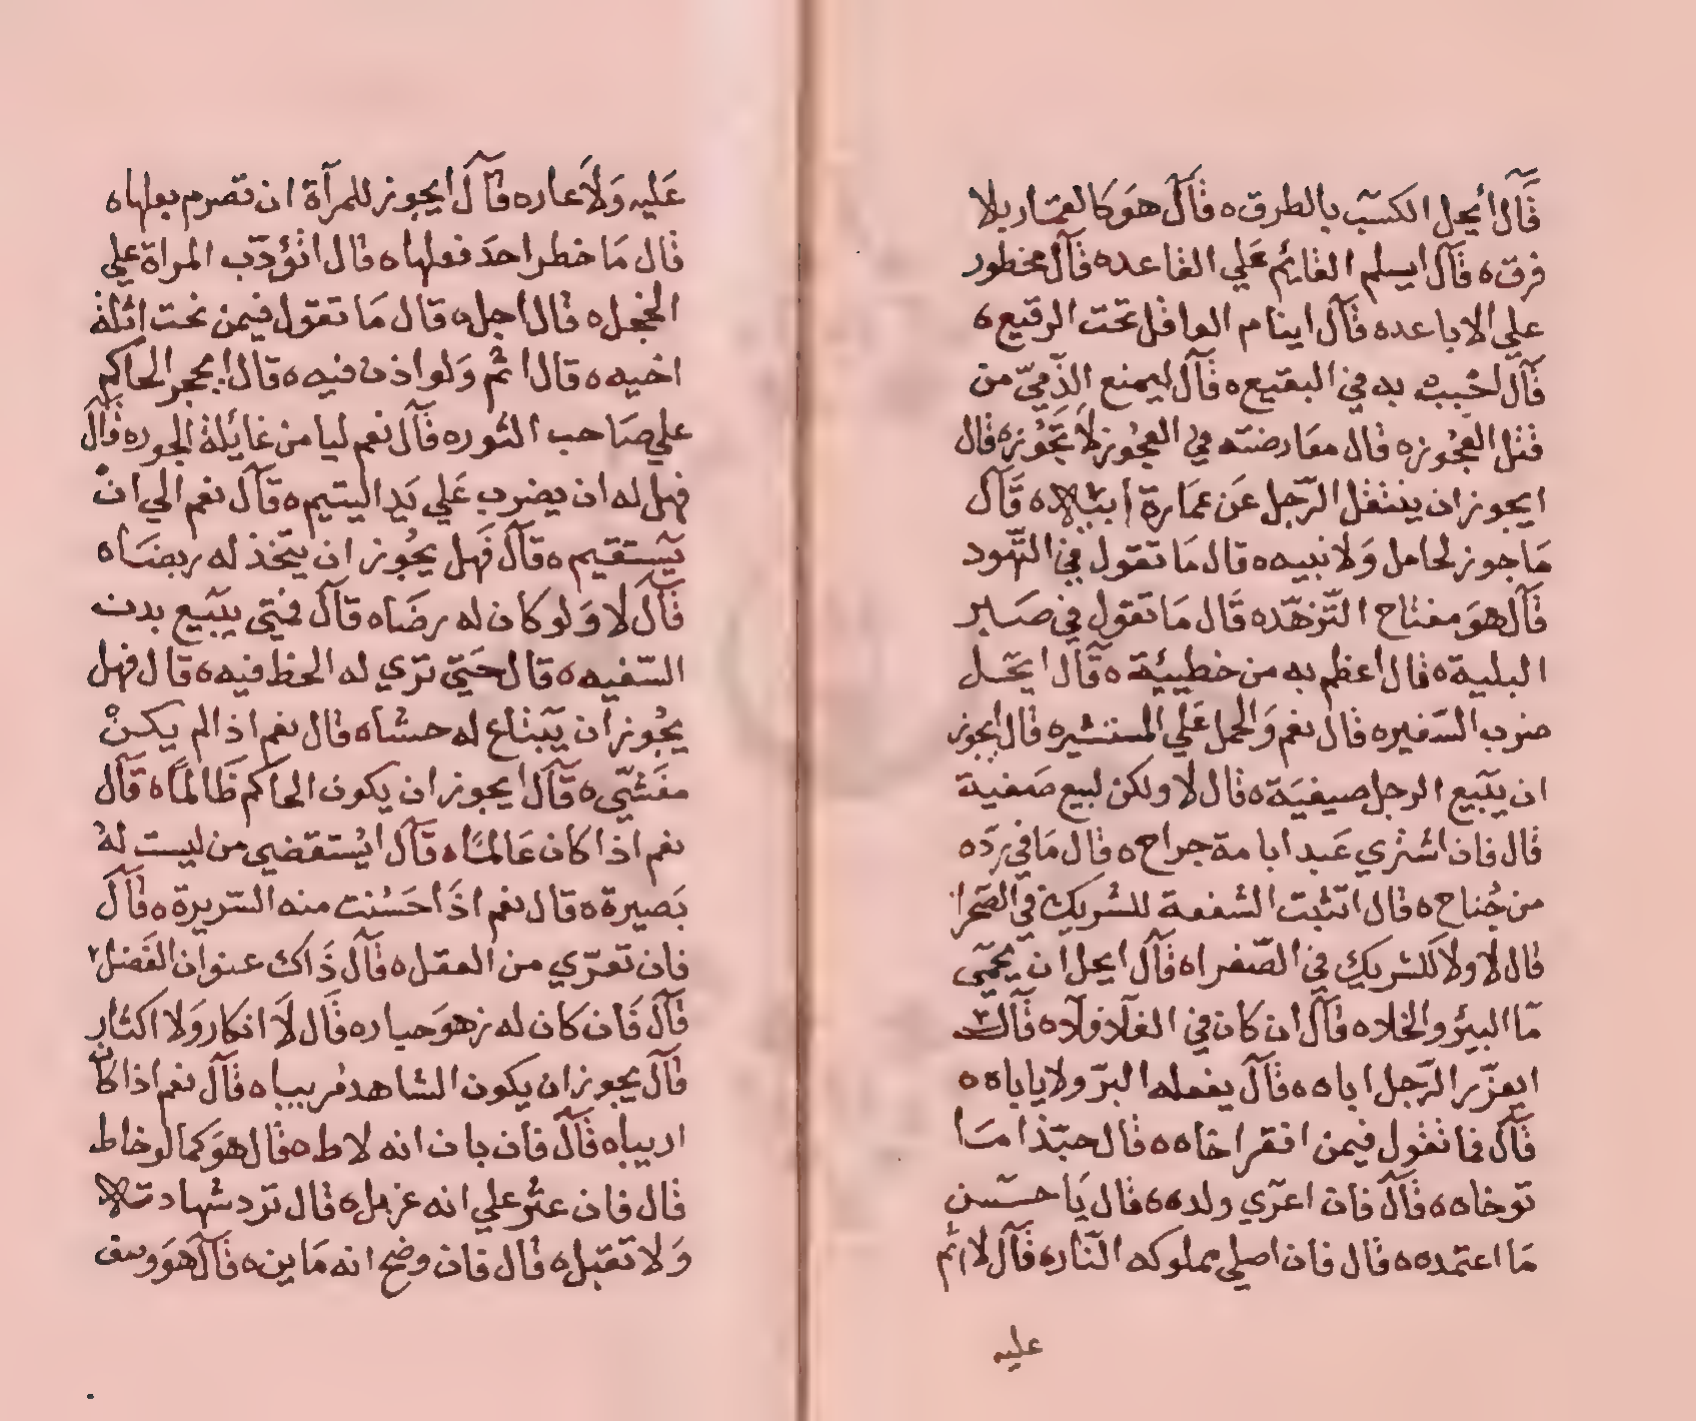 قال ايحل الكسب بالطرق ه قال هو كالقمار بلا
فرق ه قال ايسلم القايم علي القاعد ه قال محظور
علي الاباعد ه قال اينام العاقل تحت الرقيع ه
قال احبب به في البقيع ه قال ايمنع الذمّيّ من
قتل العجوز ه قال معارضته في العجوز لا تجوز ه قال
ايجوز ان ينتقل الرّجل عن عمارة ابيه ه قال
ما جوز لخامل ولا نبيه ه قال ما تقول في التهود
قال هو مفتاح التّزهّد ه قال ما تقول في صبر
البلية ه قال اعظم به من خطيئة ه قال ايحل
ضرب السّفير ه قال نعم والحمل علي المستشير ه قال ايجوز
ان يبيع الرجل صيفيّة ه قال لا ولكن ليبع صفيّة
قال فان اشتري عبدا بامه جراح ه قال ما في ردّه
من جُناح ه قال اتثبت الشفعة للشريك في الصحرا
قال لا ولا للشريك في الصّفرا ه قال ايحل ان يحمي
ما البير والخلا ه قال ان كان في الفلا فلا ه قال
ايعزّر الرّجل اباه ه قال يفعله البرّ ولا ياباه ه
قال فما تقول فيمن افقر اخاه ه قال حبّذا ما
توخاه ه قال فان اعرّي ولده ه قال يا حسن
ما اعتمده ه قال فان اصلي مملوكه النّار ه قال لا اثم
عليه
عليه ولا عار ه قال ايجوز للمرأة ان تصرم بعلها ه
قال ما خطر احد فعلها ه قال اتؤدّب المراة علي
الخجل ه قال اجل ه قال ما تقول فيمن نحت اثلة
اخيه ه قال اثم ولو اذن فيه ه قال ايحجر الحاكم
علي صاحب الثور ه قال نعم ليامن غايلة الجور ه قال
فهل له ان يضرب علي يد اليتيم ه قال نعم الي انْ
يستقيم ه قال فهل يجوز ان يتخذ له ربضا ه
قال لا ولو كان له رضا ه قال فمتي يبيع بدن
السّفيه ه قال حتي تري له الحظ فيه ه قال فهل
يجوز ان يبتاع له حشا ه قال نعم اذا لم يكنْ
مغشّي ه قال ايجوز ان يكون الحاكم ظالما ه قال
نعم اذا كان عالما ه قال ايستقضي من ليست له
بصيرة ه قال نعم اذا حسنت منه السّريرة ه قال
فان تعرّي من العقل ه قال ذاك عنوان الفضل
قال فان كان له زهو جبار ه قال لا انكار ولا اكبار
قال يجوز ان يكون الشاهد مريبا ه قال نعم اذا كان
اريبا ه قال فان بان انه لاط ه قال هو كما لو خاط
قال فان عثر علي انه غربل ه قال ترد شهادته
ولا تقبل ه قال فان وضح انه ماين ه قال هو وصف